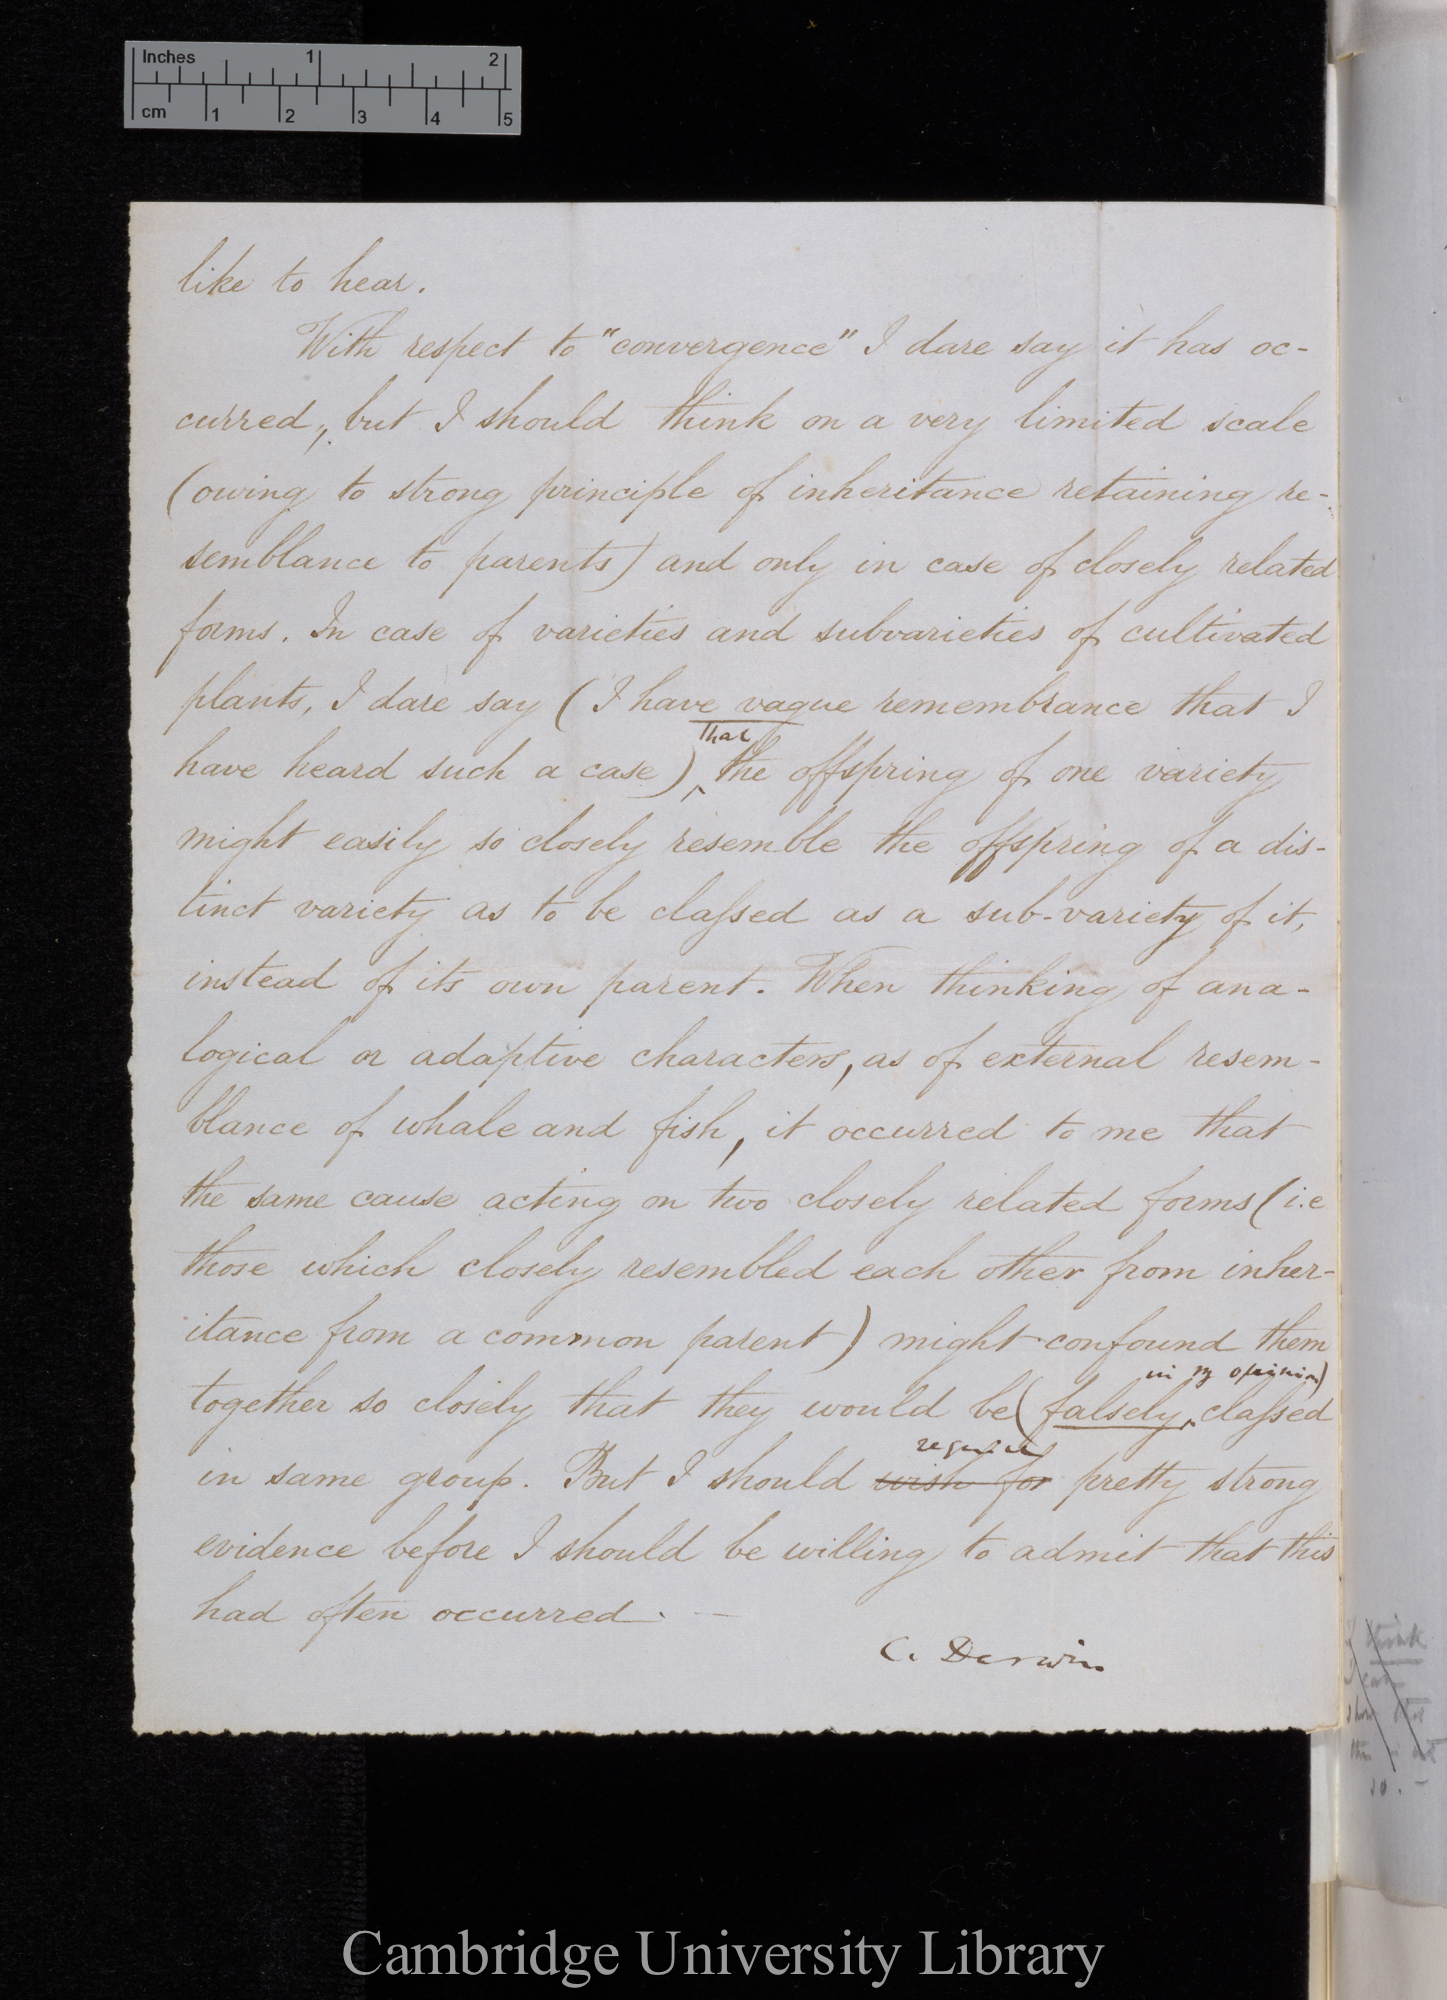 Inches 1 2
cm 1 2 3 4 5
like to hear.
With respect to "convergence" I dare say it has oc-
curred, but I should think on a very limited scale
(owing to strong principle of inheritance retaining re-
semblance to parents) and only in case of closely related
forms. In case of varieties and subvarieties of cultivated
plants, I dare say (I have vague remembrance that I
have heard such a case) that the offspring of one variety
might easily so closely resemble the offspring of a dis-
tinct variety as to be classed as a sub-variety of it,
instead of its own parent. When thinking of ana-
logical or adaptive characters, as of external resem-
blance of whale and fish, it occurred to me that
the same cause acting on two closely related forms (i.e
those which closely resembled each other from inher-
itance from a common parent) might confound them
together so closely that they would be (falsely in my opinion) classed
in same group. But I should wish for require pretty strong
evidence before I should be willing to admit that this
had often occurred. —
C. Darwin
so. —
Cambridge University Library